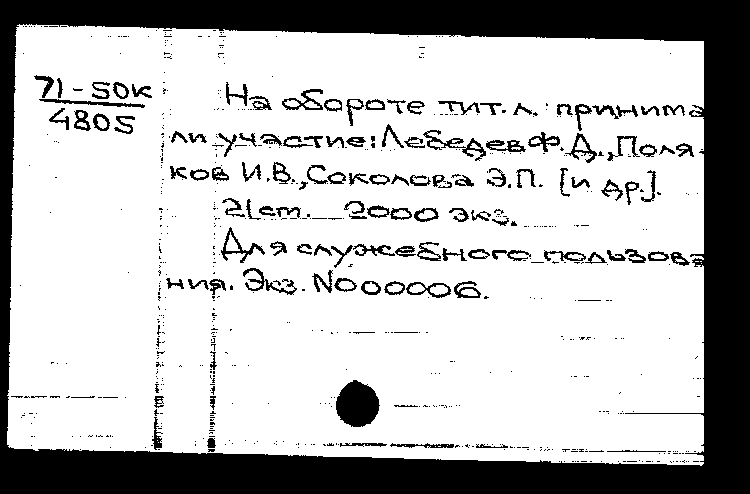 71-50к
4805
На обороте тит. л.: принима
ли участие: Лебедев Ф.Д., Поля-
ков И.В., Соколова Э.П. [и др.].
21 ст. 2000 экз.
Для служебного пользова
ния. Экз. N000006.